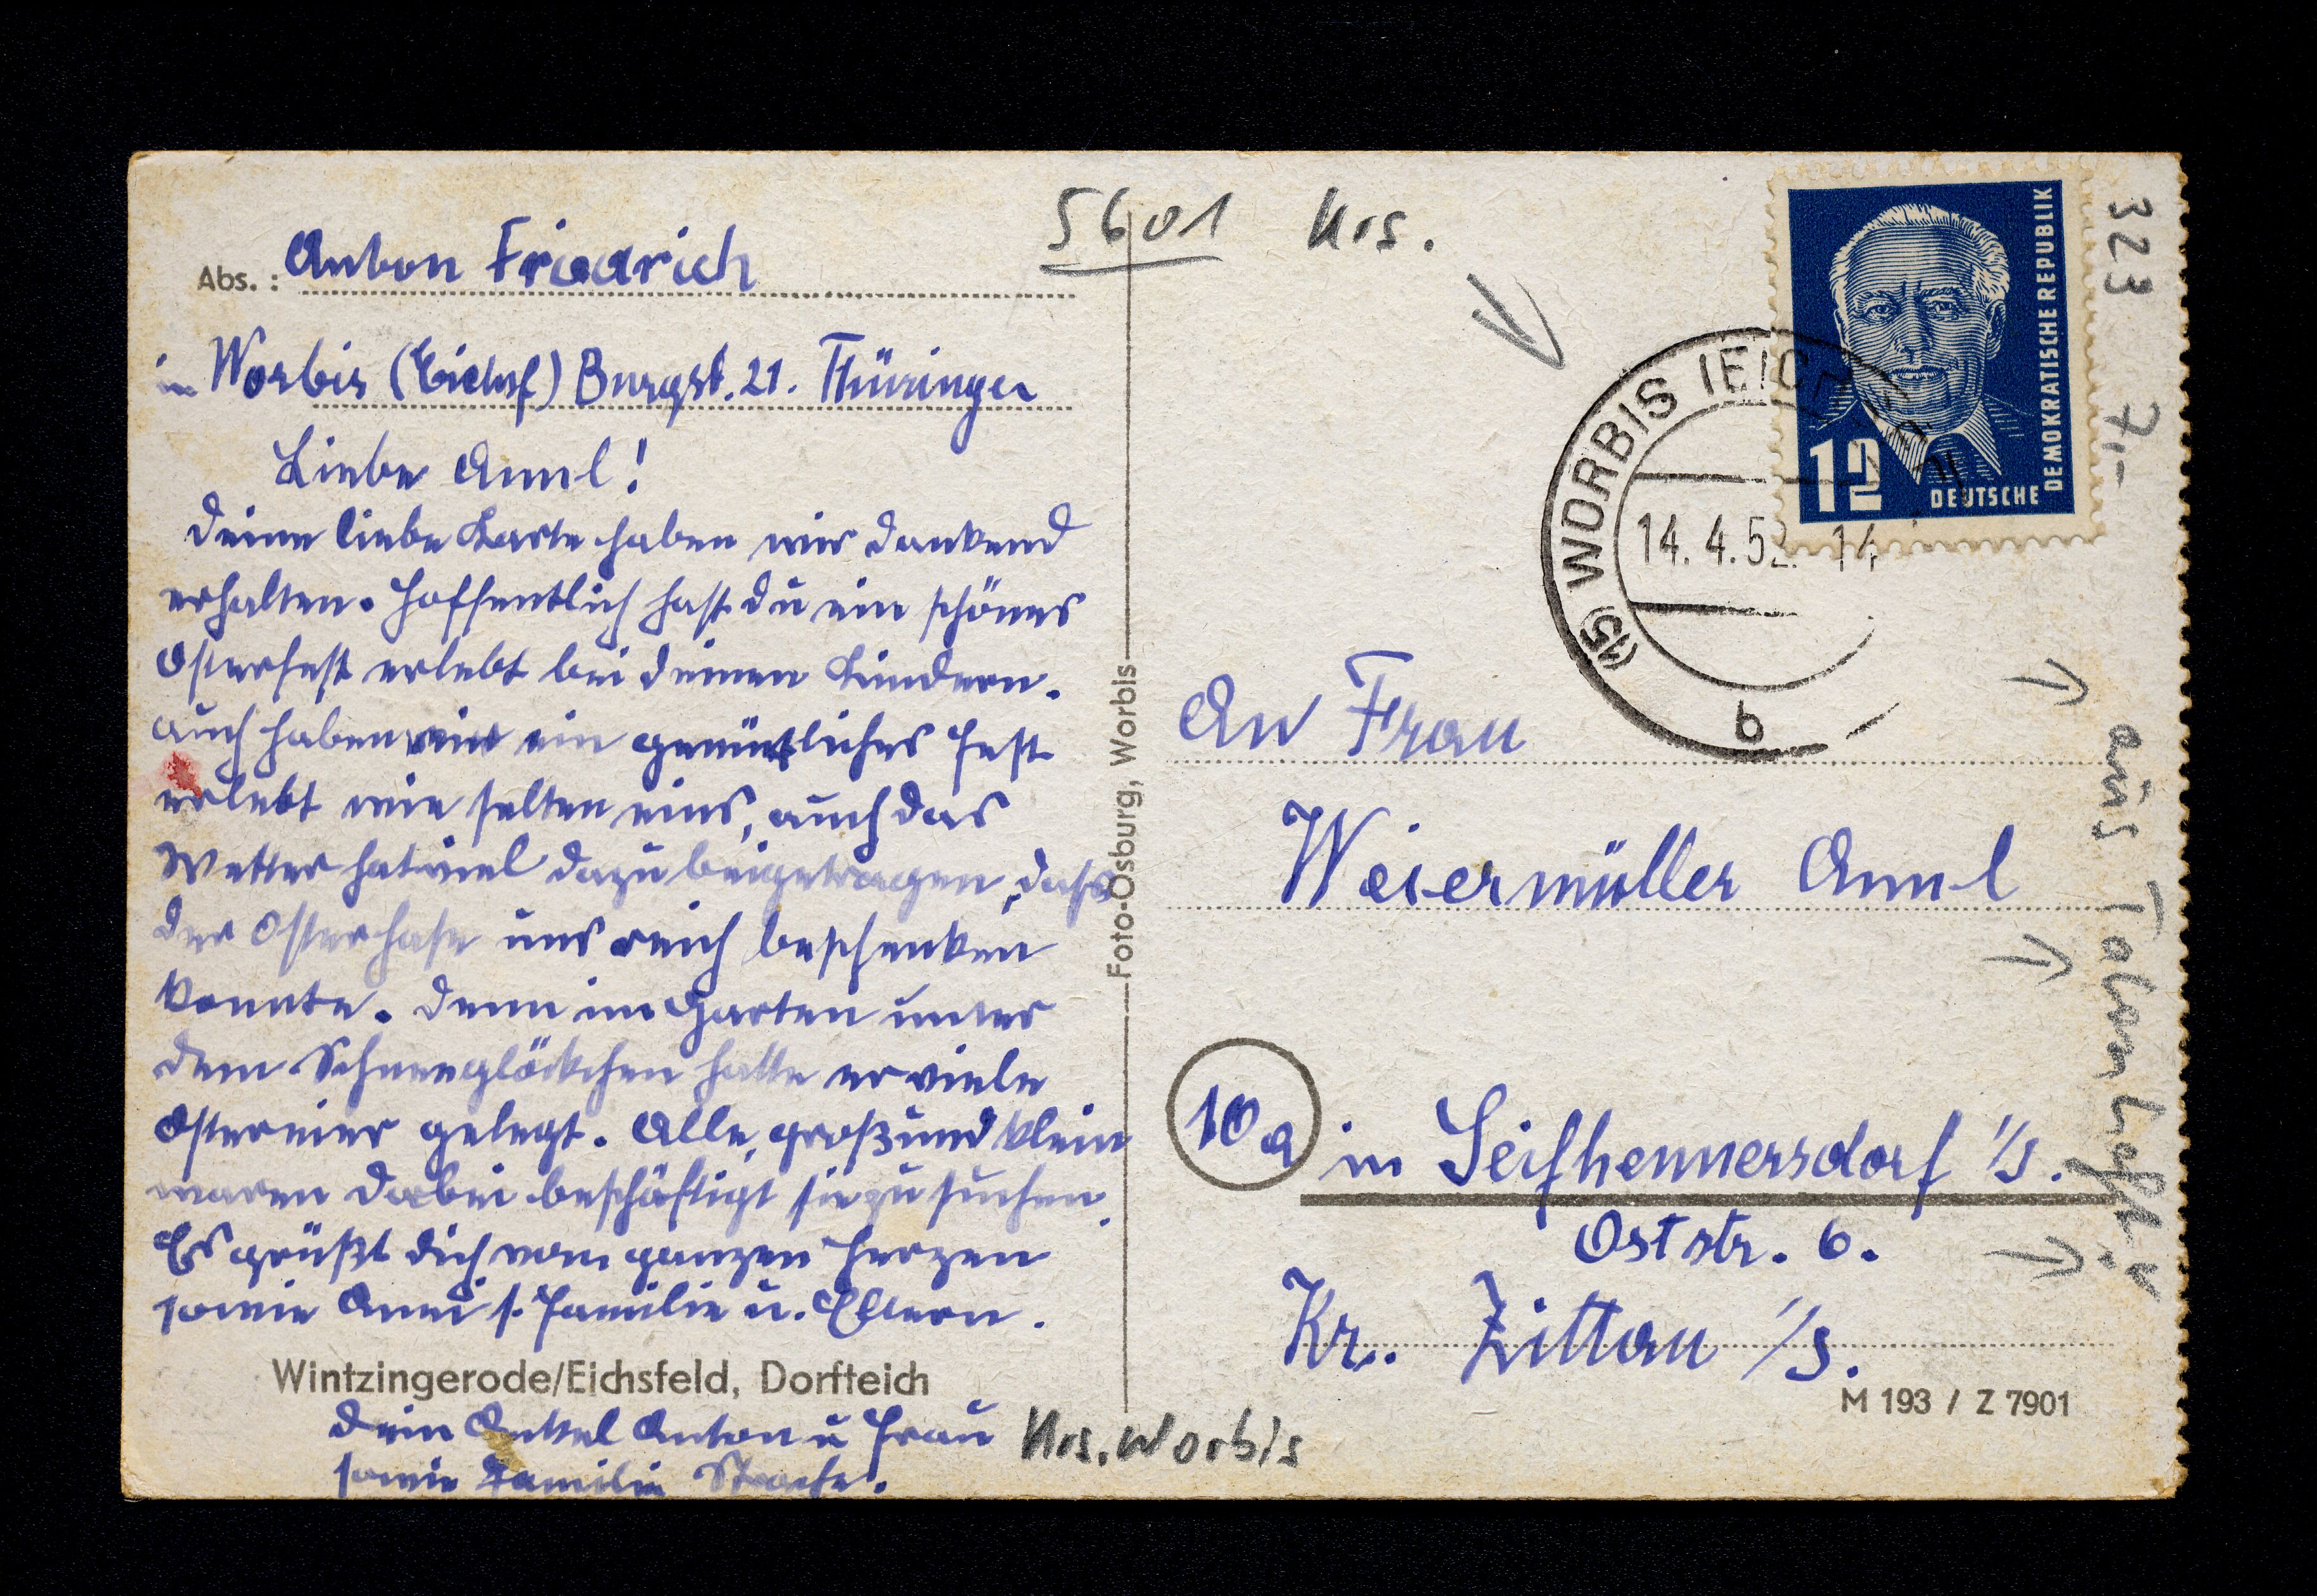 Abs.: Anton Friedrich
in Worbis (Eichsf) Burgst. 21. Thüringen
Liebe Annel!
Deine liebe Karte haben wir dankend
erhalten. Hoffentlich hast du ein schönes
Osterfest erlebt bei deinen Kindern.
auch haben wir ein gemütliches Fest
erlebt wie selten eins, auch das
Wetter hat viel dazu beigetragen, dass
der Osterhase uns reich beschenken
konnte. Denn im Garten unter
dem Schneeglöckchen hatte er viele
Ostereier gelegt. Alle, groß und klein
waren dabei beschäftigt sie zu suchen.
Es grüßt dich vom ganzen Herzen
sowie Anni s. Familie u. Eltern.
Wintzingerode/Eichsfeld, Dorfteich
Dein Onkel Anton u Frau
sowie Familie
Foto-Osburg, Worbis
5601 Krs.
Krs. Worbis
DEUTSCHE DEMOKRATISCHE REPUBLIK
12
(15) WORBIS (EICHSFELD)
14.4.52. 14
b
An Frau
Weiermüller Annel
10a in Seifhennersdorf i/S.
Oststr. 6.
Kr. Zittau i/S.
M 193 / Z 7901
323 7,-
aus